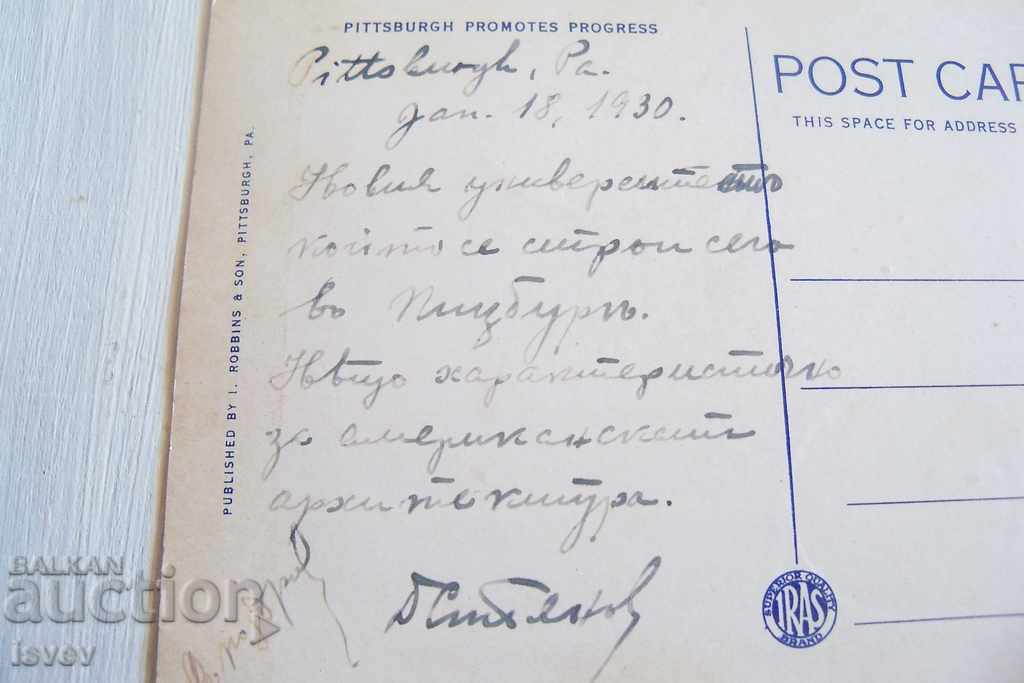 PITTSBURGH PROMOTES PROGRESS
Pittsburgh, Pa.
Jan. 18, 1930.
Новия университетъ
който се строи сега
въ Питцбургъ.
Нѣщо характеристично
за американската
архитектура.
PUBLISHED BY I. ROBBINS & SON, PITTSBURGH, PA.
POST CAR
THIS SPACE FOR ADDRESS
SUPERIOR QUALITY
IRAS
BRAND
BALKAN
auction
isvev